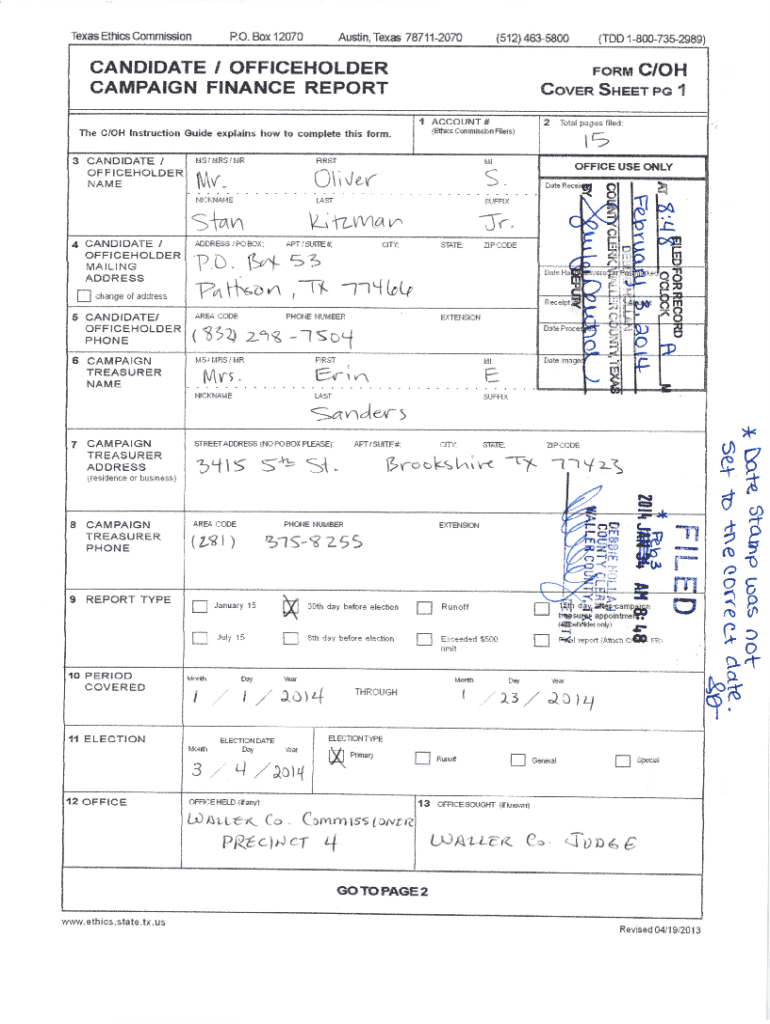 Texas Ethics Commission P.O. Box 12070 Austin, Texas 78711-2070 (512) 463-5800 (TDD 1-800-735-2989)
CANDIDATE / OFFICEHOLDER
CAMPAIGN FINANCE REPORT
FORM C/OH
COVER SHEET PG 1
The C/OH Instruction Guide explains how to complete this form.
1 ACCOUNT #
(Ethics Commission Filers)
2 Total pages filed:
15
3 CANDIDATE /
OFFICEHOLDER
NAME
MS / MRS / MR FIRST MI
Mr. Oliver S.
NICKNAME LAST SUFFIX
Stan Kitzman Jr.
OFFICE USE ONLY
Date Received
AT 8:48 O'CLOCK A M
FILED FOR RECORD
February 3, 2014
COUNTY CLERK, WALLER COUNTY, TEXAS
BY DEPUTY
Receipt
Date Processed
Date Imaged
4 CANDIDATE /
OFFICEHOLDER
MAILING
ADDRESS
change of address
ADDRESS / PO BOX; APT / SUITE #; CITY; STATE; ZIP CODE
P.O. Box 53
Pattison, TX 77466
5 CANDIDATE/
OFFICEHOLDER
PHONE
AREA CODE PHONE NUMBER EXTENSION
(832) 298-7504
6 CAMPAIGN
TREASURER
NAME
MS / MRS / MR FIRST MI
Mrs. Erin E
NICKNAME LAST SUFFIX
Sanders
7 CAMPAIGN
TREASURER
ADDRESS
(residence or business)
STREET ADDRESS (NO PO BOX PLEASE); APT / SUITE #; CITY; STATE; ZIP CODE
3415 5th St. Brookshire TX 77423
8 CAMPAIGN
TREASURER
PHONE
AREA CODE PHONE NUMBER EXTENSION
(281) 375-8255
FILED
* Feb 3
2014 JAN AM 8:48
COUNTY CLERK
WALLER COUNTY,
* Date Stamp was not
set to the correct date.
9 REPORT TYPE
January 15 30th day before election Runoff 15th day after campaign
treasurer appointment
(officeholder only)
July 15 8th day before election Exceeded $500
limit
10 PERIOD
COVERED
Month Day Year Month Day Year
1 / 1 / 2014 THROUGH 1 / 23 / 2014
11 ELECTION
ELECTION DATE
Month Day Year
3 / 4 / 2014
ELECTION TYPE
Primary Runoff General Special
12 OFFICE
OFFICE HELD (if any)
WALLER Co. COMMISSIONER
PRECINCT 4
13 OFFICE SOUGHT (if known)
WALLER Co. JUDGE
GO TO PAGE 2
www.ethics.state.tx.us
Revised 04/19/2013